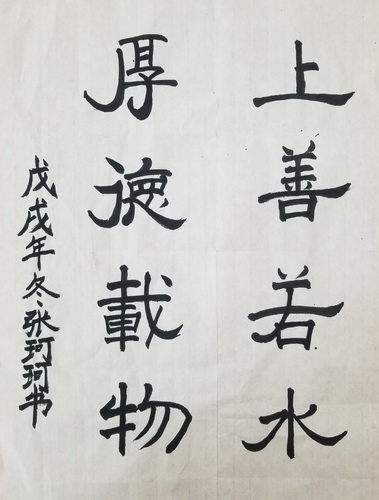 上善若水
厚德載物
戊戌年冬张珂珂书